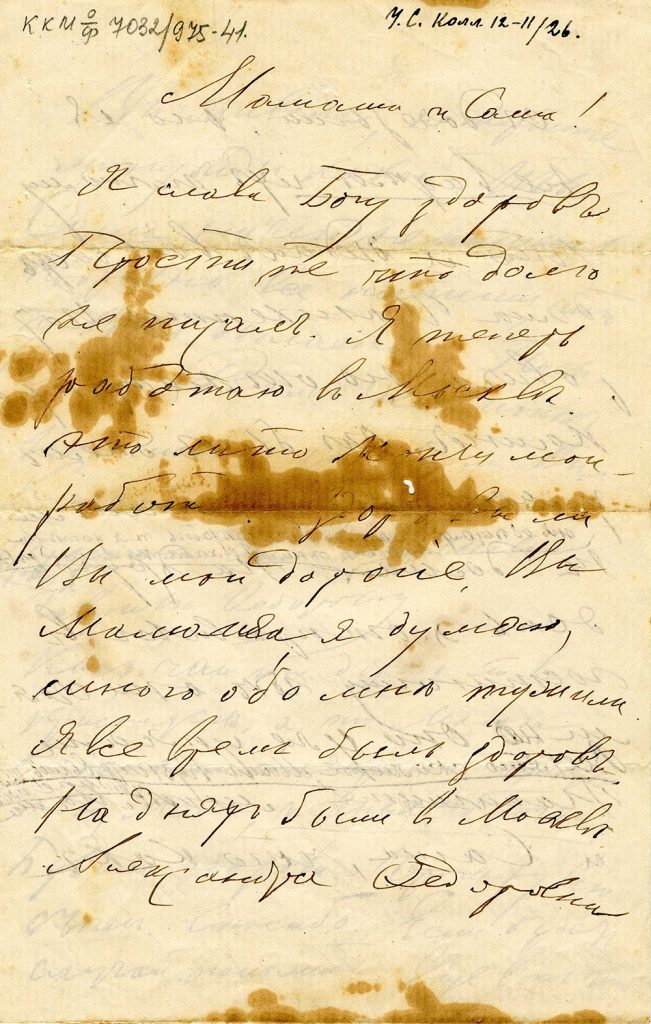 ККМ оф 7032/975-41.
У.С. Колл 12-11/26.
Мамаша и Саша!
Я слава Богу здоровъ
Простите что долго
не писалъ. Я теперь
работаю въ Москвѣ
это
работ ли
Вы мои дорогіе, Вы
Мамаша, я думаю,
много обо мнѣ тужили
Я все время былъ здоровъ.
На дняхъ были в Москвѣ
Александра Федоровна